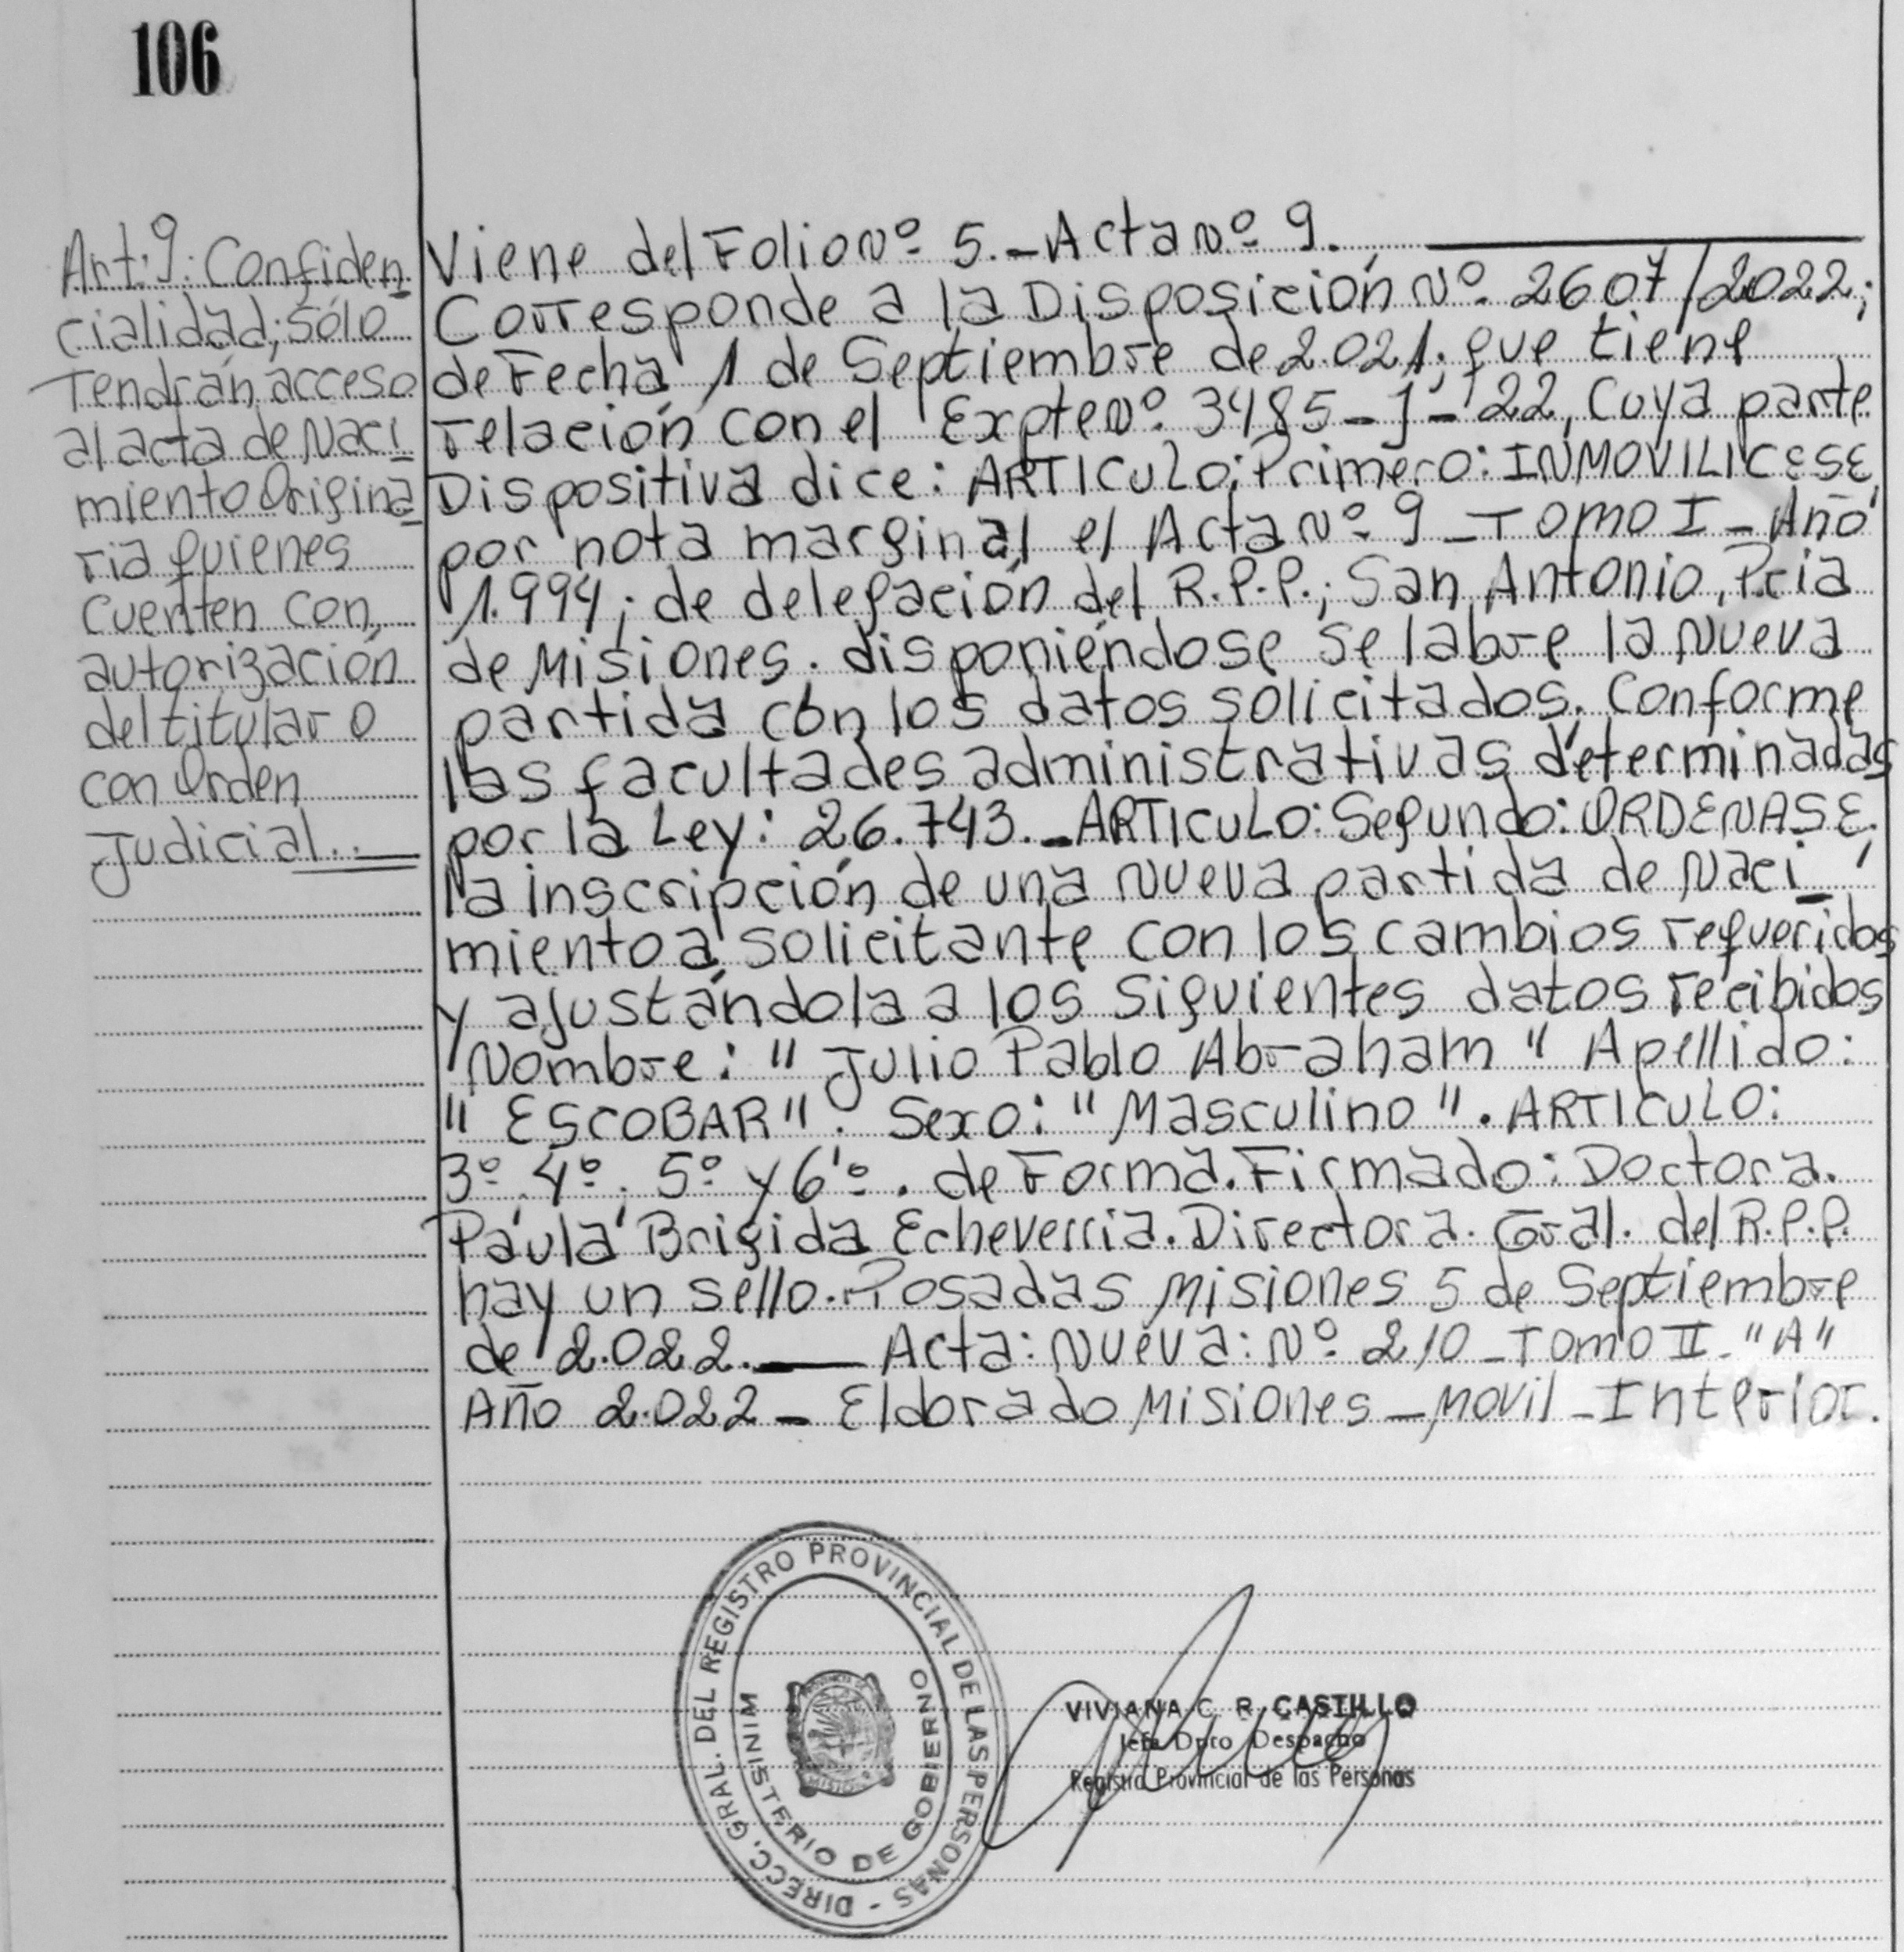 106
Art: 9: Confiden
cialidad; sólo
Tendrán acceso
al acta de Naci
miento Origina
ria quienes
cuenten con
autorización
del titular o
con Orden
Judicial..
Viene del Folio Nº 5.-Acta Nº 9.
Corresponde a la Disposición Nº 2607/2022;
de Fecha 1 de Septiembre de 2.021, que tiene
relación con el Expte Nº 3485-J-22, Cuya parte
Dispositiva dice: ARTICULO: Primero: INMOVILICESE
por nota marginal el Acta Nº 9 - Tomo I - Año
1.994; de delegación del R.P.P.; San Antonio, Pcia
de Misiones. disponiéndose se labre la Nueva
partida con los datos solicitados. Conforme
las facultades administrativas determinadas
por la Ley: 26.743.-ARTICULO: Segundo: ORDENASE
la inscripción de una Nueva partida de Naci
miento a solicitante con los cambios requeridos
y ajustándola a los siguientes datos recibidos
Nombre: "Julio Pablo Abraham" Apellido:
"ESCOBAR". Sexo: "Masculino". ARTICULO:
3º, 4º, 5º y 6º. de Forma. Firmado: Doctora.
Paula Brigida Echeverria. Directora. Gral. del R.P.P.
hay un sello. Posadas Misiones 5 de Septiembre
de 2.022.— Acta: Nueva: Nº 210 - Tomo II - "A"
Año 2.022 - Eldorado Misiones - Movil - Interior.
DIRECC. GRAL. DEL REGISTRO PROVINCIAL DE LAS PERSONAS -
MINISTERIO DE GOBIERNO
VIVIANA C. R. CASTILLO
Jefa Dpto Despacho
Registro Provincial de las Personas